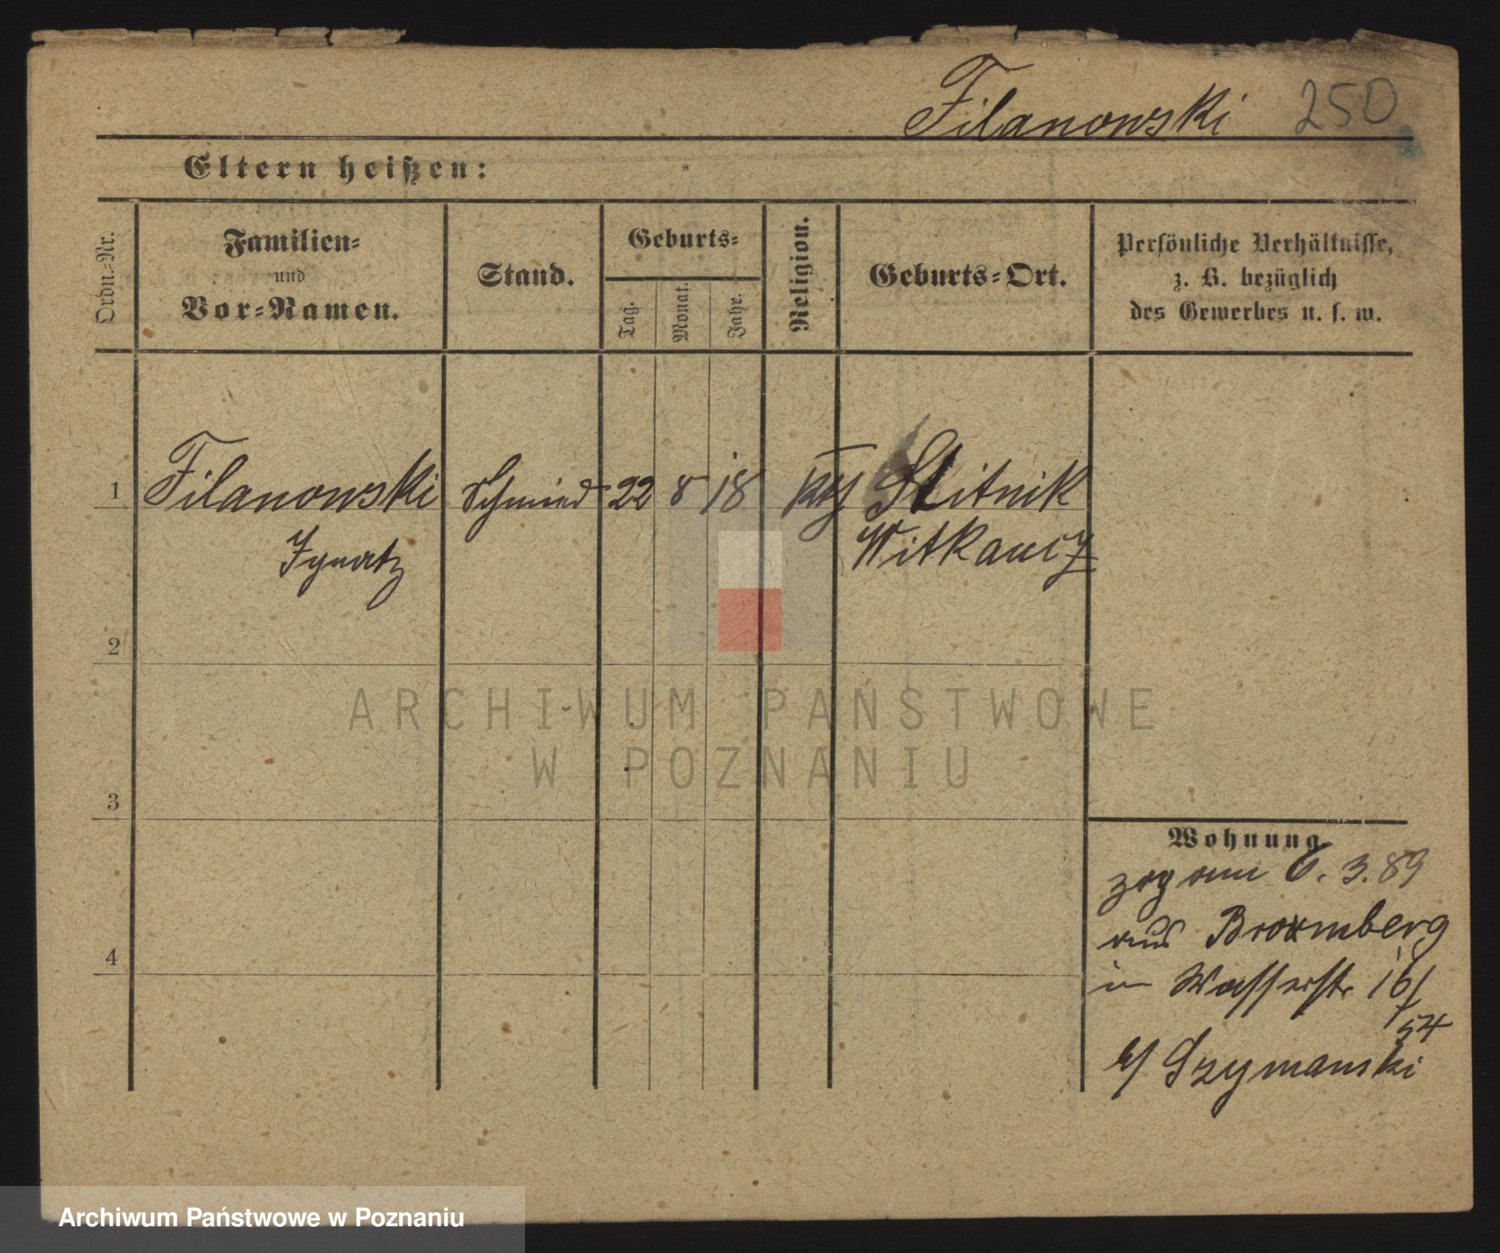 Filanowski 250
Eltern heißen:
Ordn.-Nr.
Familien-
und
Vor-Namen.
Stand.
Geburts-
Tag.
Monat.
Jahr.
Religion.
Geburts-Ort.
Persönliche Verhältnisse,
z. B. bezüglich
des Gewerbes u. s. w.
1 Filanowski Schmied 22 8 18 kth Slitnik
Ignatz Witkawcz
2
3
4
Wohnung
zog am 6. 3. 89
aus Bromberg
in Wasserstr 16/
54
b/ Szymanski
ARCHIWUM PAŃSTWOWE
W POZNANIU
Archiwum Państwowe w Poznaniu